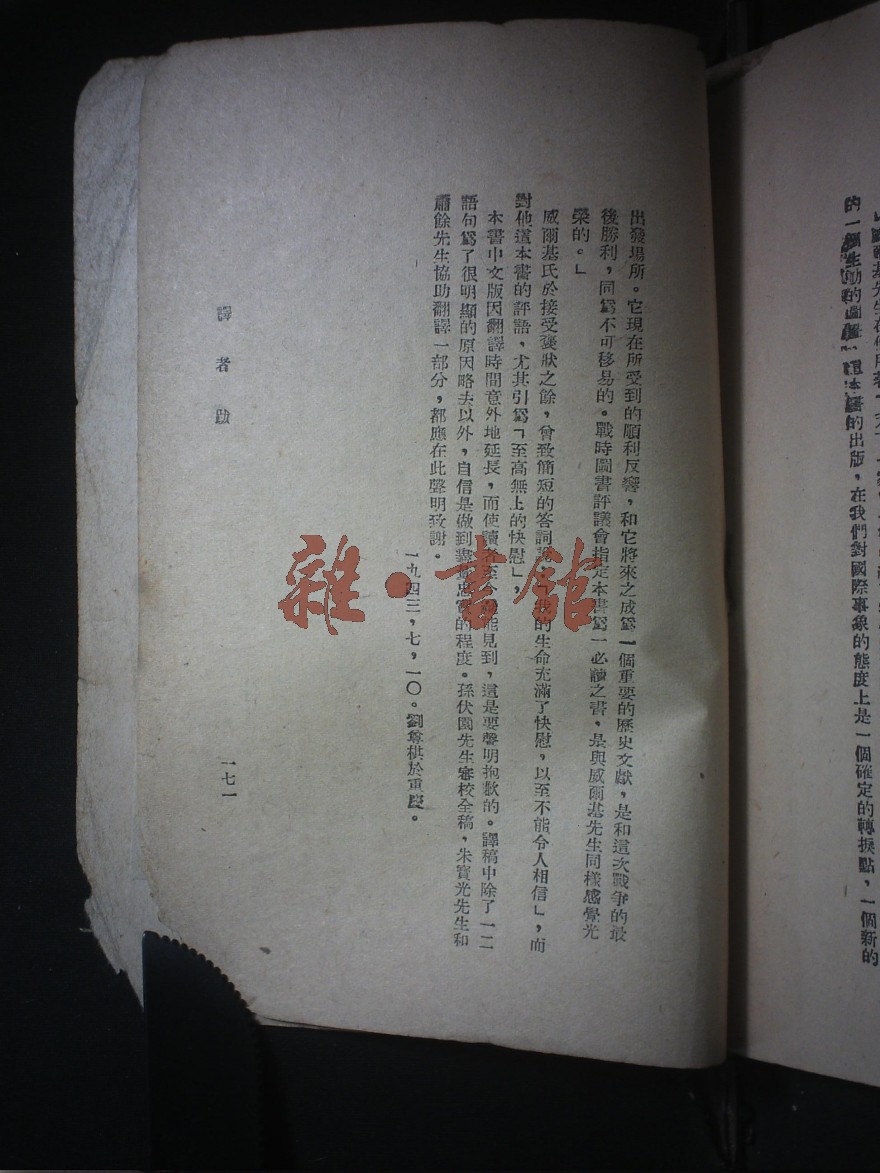 的一個生動的圖畫，這本書的出版，在我們對國際事象的態度上是一個確定的轉捩點，一個新的
出發場所。它現在所受到的順利反響，和它將來之成爲一個重要的歷史文獻，是和這次戰爭的最
後勝利，同爲不可移易的。戰時圖書評議會指定本書爲一必讀之書，是與威爾基先生同樣感覺光
榮的。」
威爾基氏於接受褒狀之餘，曾致簡短的答詞說：我的生命充滿了快慰，以至不能令人相信」，而
對他這本書的評語，尤其引爲「至高無上的快慰」，
本書中文版因翻譯時間意外地延長，而使讀者至今能見到，這是要聲明抱歉的。譯稿中除了一二
語句爲了很明顯的原因略去以外，自信是做到忠實的程度。孫伏園先生審校全稿，朱寶光先生和
蕭餘先生協助翻譯一部分，都應在此聲明致謝。
一九四三，七，一〇。劉尊棋於重慶。
譯者跋
一七一
雜·書館